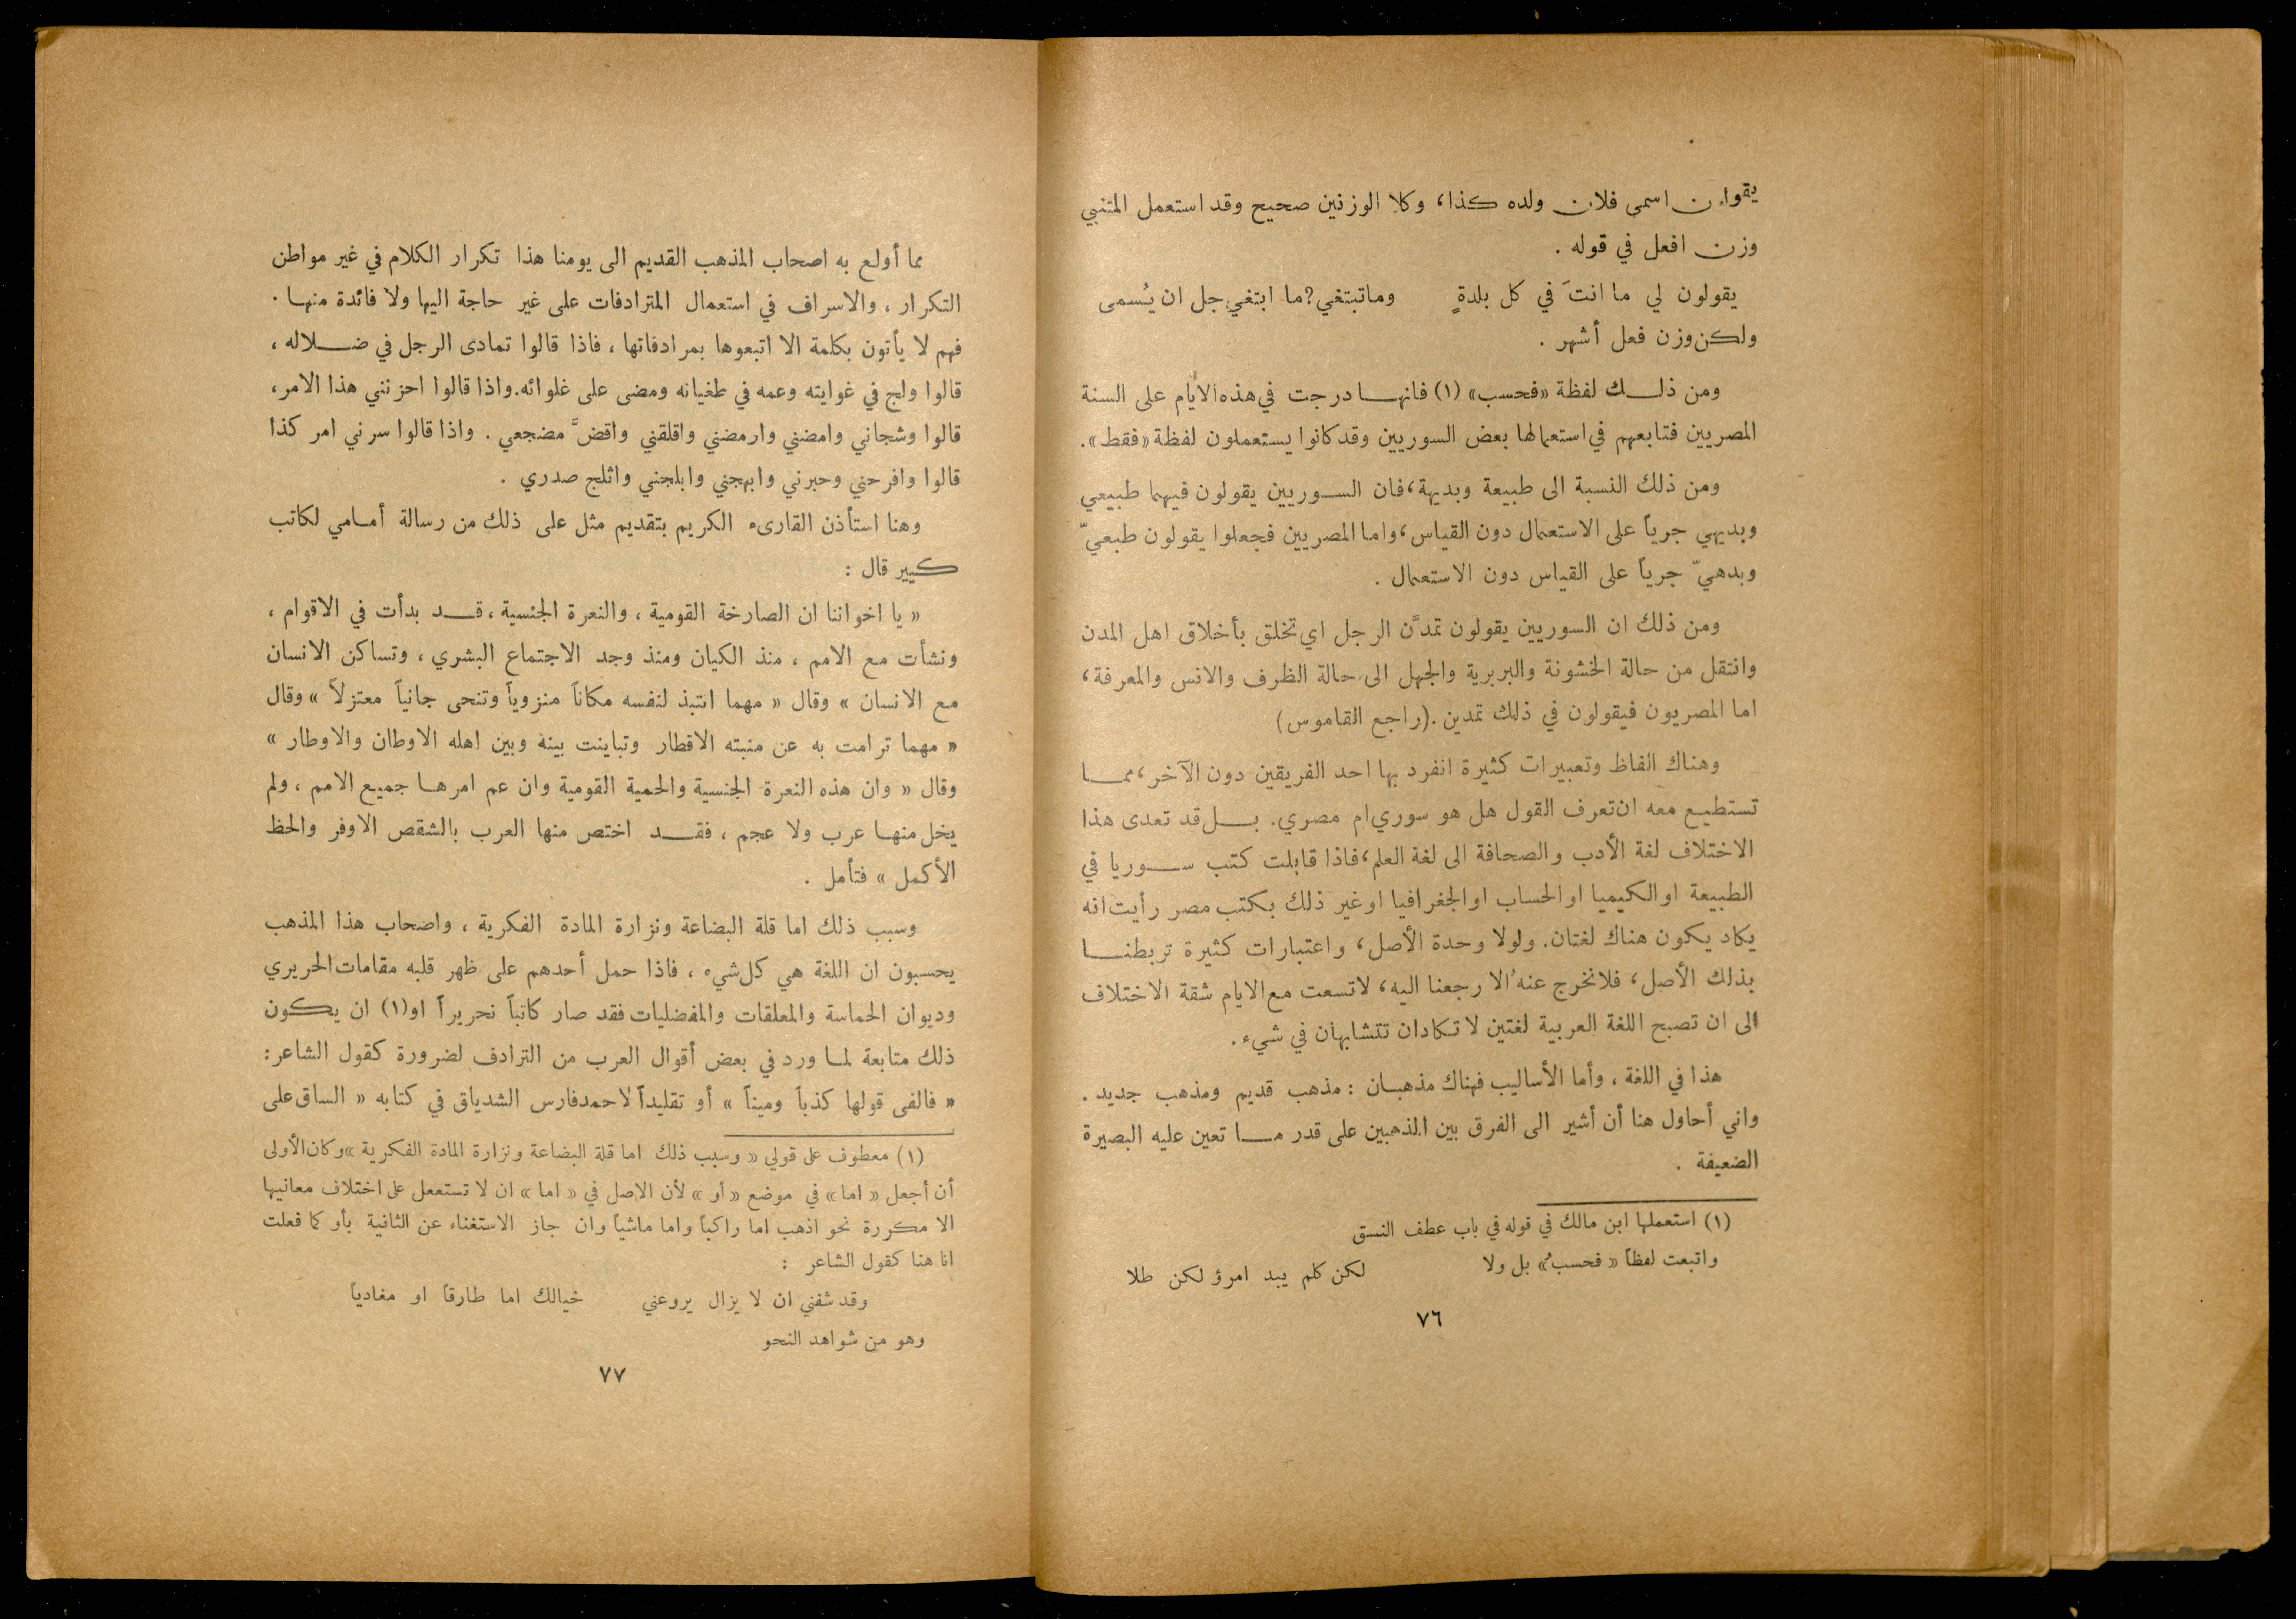 يقولون اسمى فلان ولده كذا، وكلا الوزنين صحيح وقد استعمل المتنبي
وزن افعل في قوله .
يقولون لي ما انتَ في كل بلدةٍ وماتبتغي؟ما ابتغي جل ان يُسمى
ولكن وزن فعل أشهر .
ومن ذلك لفظة «فحسب» (١) فانها درجت في هذه الأيام على السنة
المصريين فتابعهم في استعمالها بعض السوريين وقد كانوا يستعملون لفظة «فقط».
ومن ذلك النسبة الى طبيعة وبديهة، فان السوريين يقولون فيهما طبيعي
وبديهي جرياً على الاستعمال دون القياس، واما المصريين فجعلوا يقولون طبعيّ
وبدهيّ جرياً على القياس دون الاستعمال .
ومن ذلك ان السوريين يقولون تمدَّن الرجل اي تخلق بأخلاق اهل المدن
وانتقل من حالة الخشونة والبربرية والجهل الى حالة الظرف والانس والمعرفة،
اما المصريون فيقولون في ذلك تمدين .(راجع القاموس)
وهناك الفاظ وتعبيرات كثيرة انفرد بها احد الفريقين دون الآخر، مما
تستطيع معه ان تعرف القول هل هو سوري ام مصري. بل قد تعدى هذا
الاختلاف لغة الأدب والصحافة الى لغة العلم، فاذا قابلت كتب سوريا في
الطبيعة او الكيميا او الحساب او الجغرافيا او غير ذلك بكتب مصر رأيت انه
يكاد يكون هناك لغتان. ولولا وحدة الأصل، واعتبارات كثيرة تربطنا
بذلك الأصل، فلا نخرج عنهُ الا رجعنا اليه، لاتسعت مع الايام شقة الاختلاف
الى ان تصبح اللغة العربية لغتين لا تكادان تتشابهان في شيء.
هذا في اللغة ، وأما الأساليب فهناك مذهبان : مذهب قديم ومذهب جديد .
واني أحاول هنا أن أشير الى الفرق بين المذهبين على قدر ما تعين عليه البصيرة
الضعيفة .
(١) استعملها ابن مالك في قوله في باب عطف النسق
واتبعت لفظاً « فحسبُ » بل ولا لكن كلم يبد امرؤ لكن طلا
٧٦
مما أولع به اصحاب المذهب القديم الى يومنا هذا تكرار الكلام في غير مواطن
التكرار ، والاسراف في استعمال المترادفات على غير حاجة اليها ولا فائدة منها .
فهم لا يأتون بكلمة الا اتبعوها بمرادفاتها ، فاذا قالوا تمادى الرجل في ضلاله ،
قالوا ولج في غوايته وعمه في طغيانه ومضى على غلوائه.واذا قالوا احزنني هذا الامر،
قالوا وشجاني وامضني وارمضني واقلقني واقضَّ مضجعي . واذا قالوا سرني امر كذا
قالوا وافرحني وحبرني وابهجني وابلجني واثلج صدري .
وهنا استأذن القارىء الكريم بتقديم مثل على ذلك من رسالة أمامي لكاتب
كبير قال :
« يا اخواننا ان الصارخة القومية ، والنعرة الجنسية ، قد بدأت في الاقوام ،
ونشأت مع الامم ، منذ الكيان ومنذ وجد الاجتماع البشري ، وتساكن الانسان
مع الانسان » وقال « مهما انتبذ لنفسه مكاناً منزوياً وتنحى جانباً معتزلاً » وقال
« مهما ترامت به عن منبته الاقطار وتباينت بينه وبين اهله الاوطان والاوطار »
وقال « وان هذه النعرة الجنسية والحمية القومية وان عم امرها جميع الامم ، ولم
يخل منها عرب ولا عجم ، فقد اختص منها العرب بالشقص الاوفر والحظ
الأكمل » فتأمل .
وسبب ذلك اما قلة البضاعة ونزارة المادة الفكرية ، واصحاب هذا المذهب
يحسبون ان اللغة هي كل شيء ، فاذا حمل أحدهم على ظهر قلبه مقامات الحريري
وديوان الحماسة والمعلقات والمفضليات فقد صار كاتباً نحريراً او(١) ان يكون
ذلك متابعة لما ورد في بعض أقوال العرب من الترادف لضرورة كقول الشاعر:
« فالفى قولها كذباً وميناً » أو تقليداً لاحمد فارس الشدياق في كتابه « الساق على
(١) معطوف على قولي « وسبب ذلك اما قلة البضاعة ونزارة المادة الفكرية »وكان الأولى
أن أجعل « اما » في موضع « أو » لأن الاصل في « اما » ان لا تستعمل على اختلاف معانيها
الا مكررة نحو اذهب اما راكباً واما ماشياً وان جاز الاستغناء عن الثانية بأو كما فعلت
انا هنا كقول الشاعر :
وقد شفني ان لا يزال يروعني خيالك اما طارقاً او مغادياً
وهو من شواهد النحو
٧٧